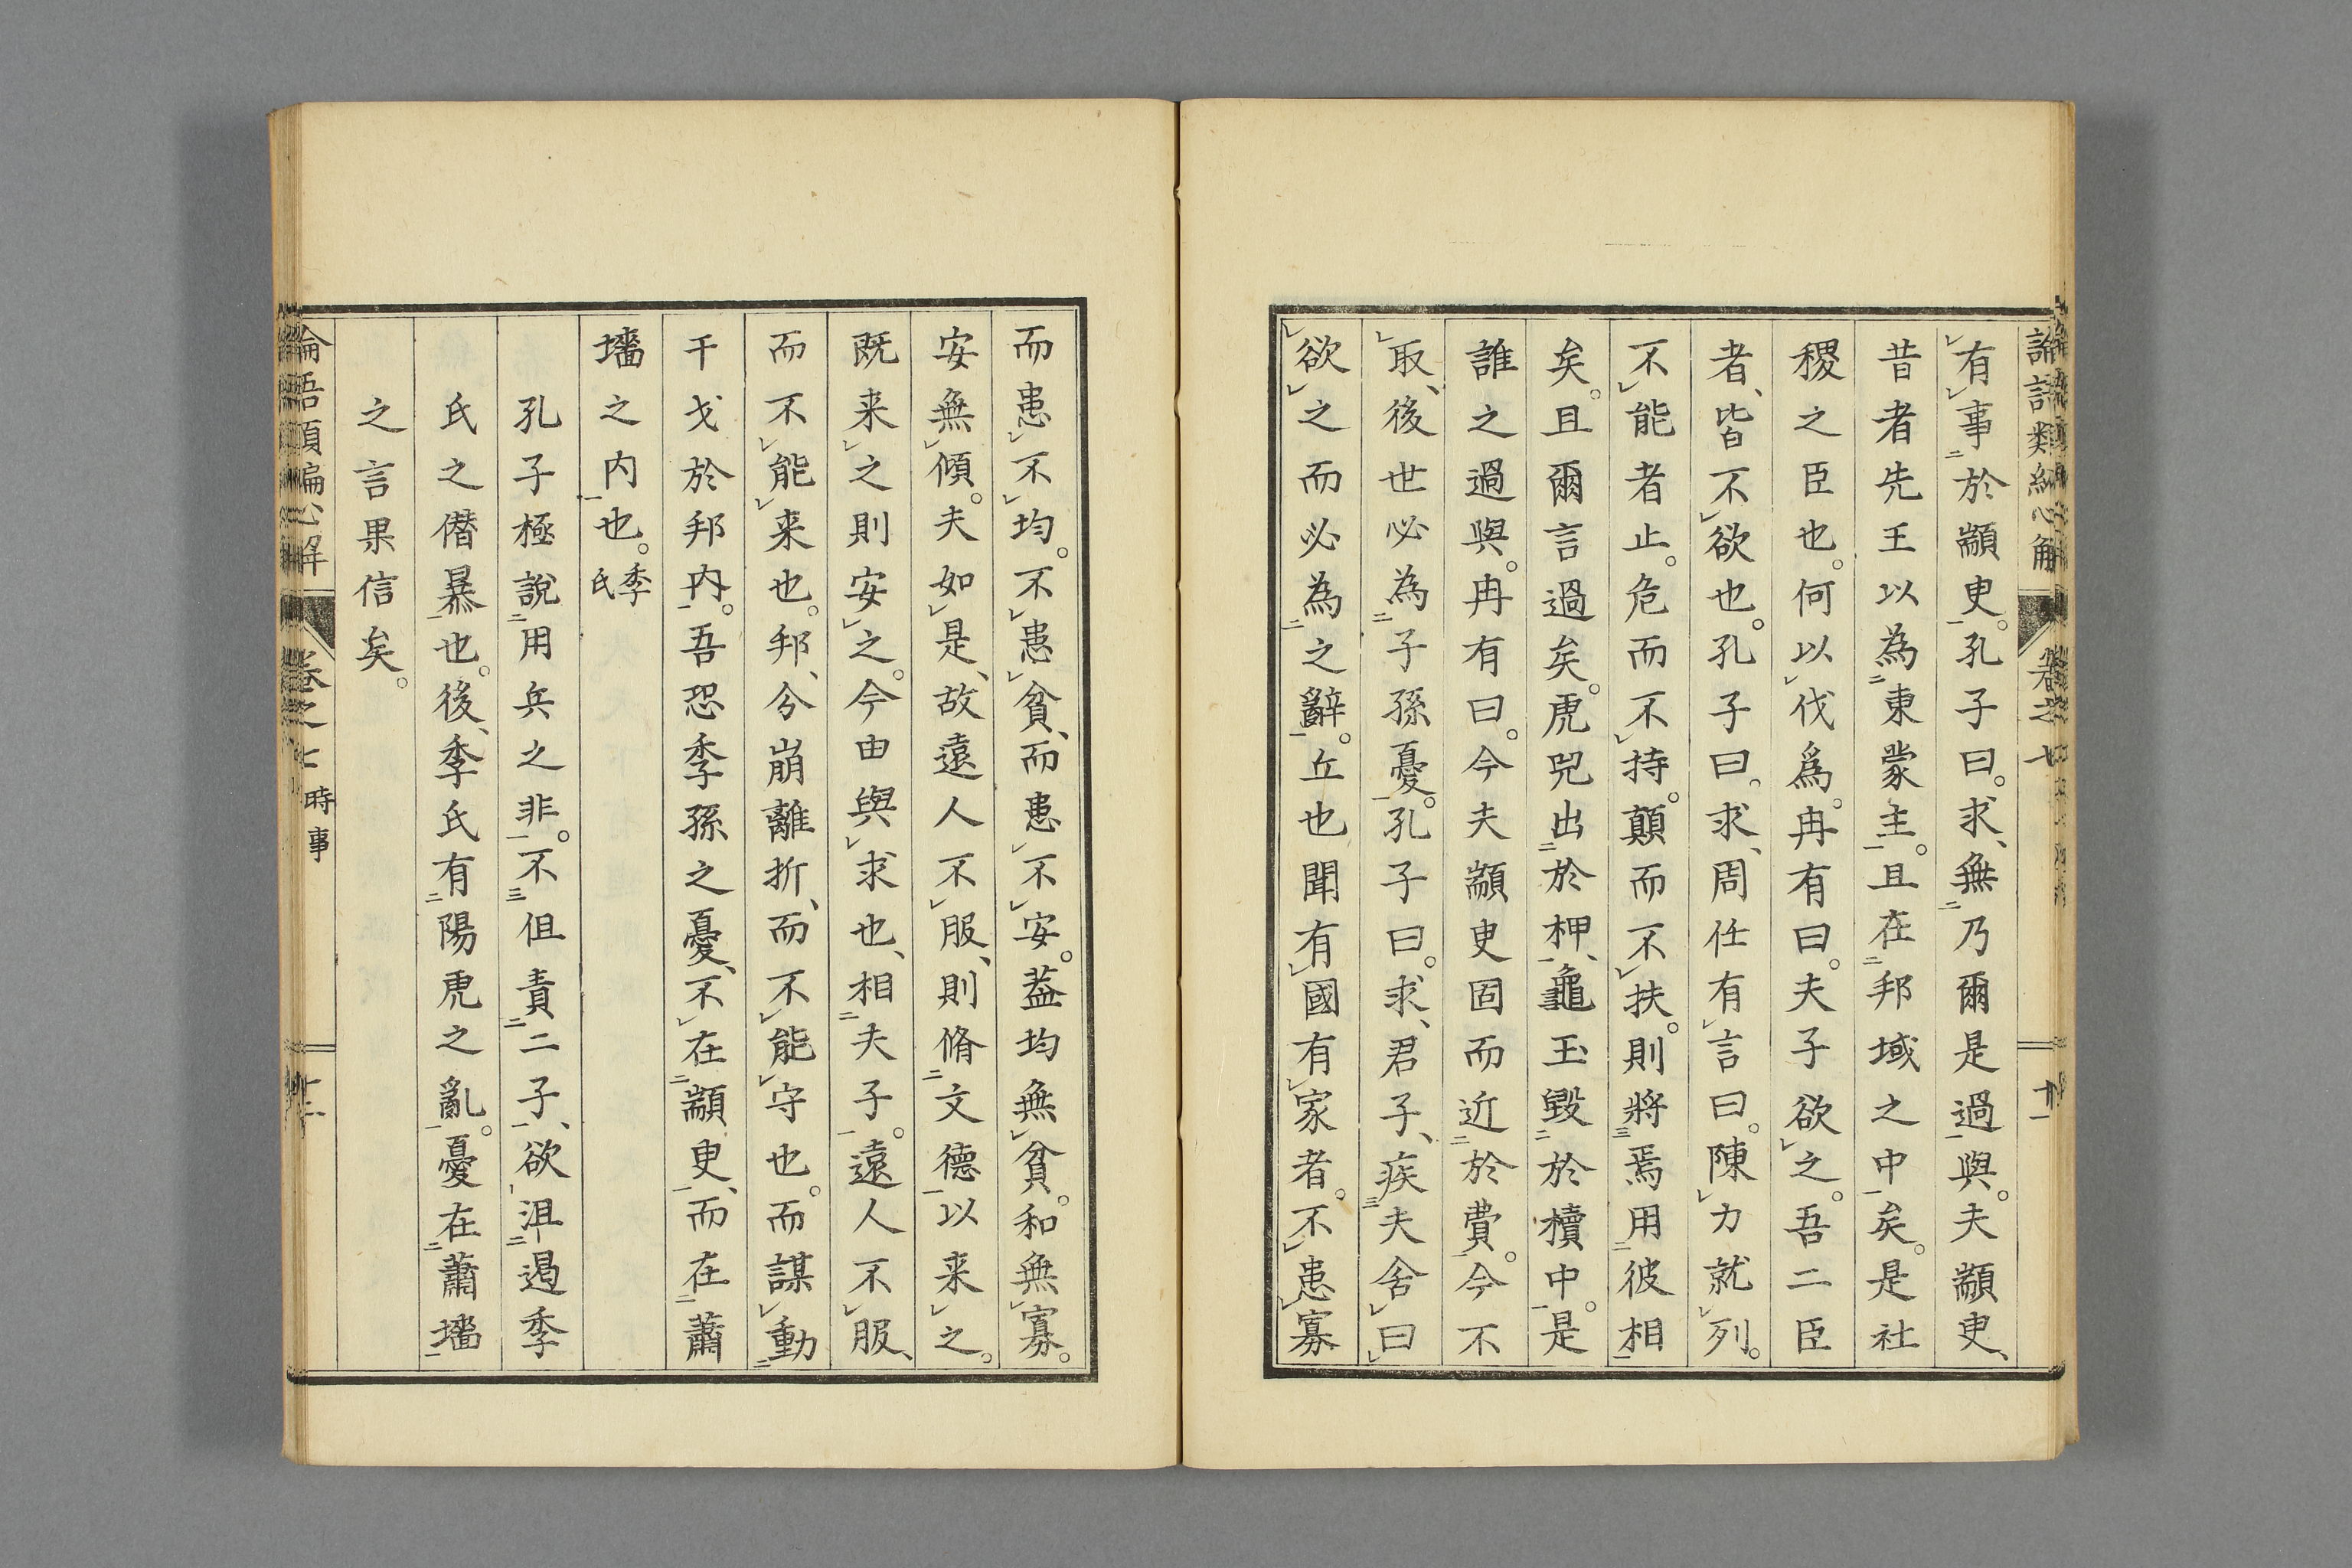 有事於顓臾。孔子曰。求、無乃爾是過與。夫顓臾、
昔者先王以為東蒙主。且在邦域之中矣。是社
稷之臣也。何以伐爲。冉有曰。夫子欲之。吾二臣
者、皆不欲也。孔子曰。求、周任有言曰。陳力就列。
不能者止。危而不持。顛而不扶。則將焉用彼相
矣。且爾言過矣。虎兕出於柙、龜玉毀於櫝中。是
誰之過與。冉有曰。今夫顓臾固而近於費。今不
取、後世必為子孫憂。孔子曰。求、君子、疾夫舍曰
欲之而必為之辭。丘也聞有國有家者。不患寡
而患不均。不患貧、而患不安。葢均無貧。和無寡。
安無傾。夫如是、故遠人不服、則脩文德以来之。
既来之則安之。今由與求也、相夫子。遠人不服、
而不能来也。邦、分崩離折、而不能守也。而謀動
干戈於邦内。吾恐季孫之憂、不在顓臾、而在蕭
墻之内也。季氏
孔子極說用兵之非。不但責二子、欲沮遏季
氏之僭暴也。後、季氏有陽虎之亂。憂在蕭墻
之言果信矣。
論語類編心解 卷之七 時事 十二